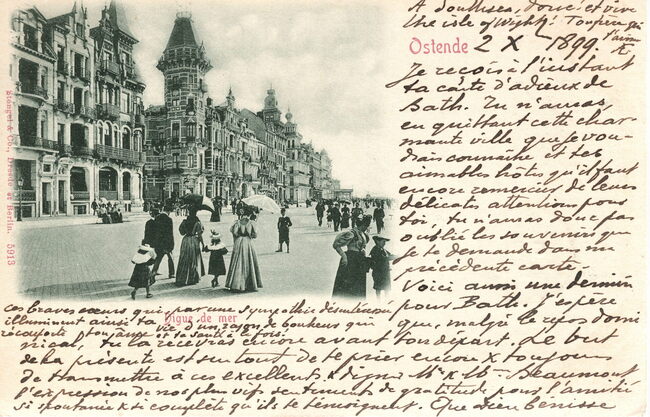 A Southsea, donc! et vive
the isle of Wight! Toujours qui
t'aime
Ostende 2 X 1899.
Je reçois à l'instant
ta carte d'adieux de
Bath. Tu n'auras,
en quittant cette char-
mante ville que je vou-
drais connaître et tes
aimables hôtes qu'il faut
encore remercier de leurs
délicates attentions pour
toi, tu n'auras donc pas
oublié les souvenirs que
je te demande dans ma
précédente carte.
Voici aussi une dernière
pour Bath. J'espère
que, malgré le repos domi-
nical, tu la recevras encore avant ton départ. Le but
de la présente est surtout de te prier encore & toujours
de transmettre à ces excellents & dignes Mr & Mme Beaumont
l'expression de nos plus vifs sentiments de gratitude pour l'amitié
si spontanée & si complète qu'ils te témoignent. Que Dieu bénisse
ces braves cœurs, qui, par une sympathie désintéressée
illuminent ainsi ta vie d'un rayon de bonheur qui
réchauffe ton âme et ta santé à la fois!
Digue de mer
Stengel & Co., Dresde et Berlin. 5913